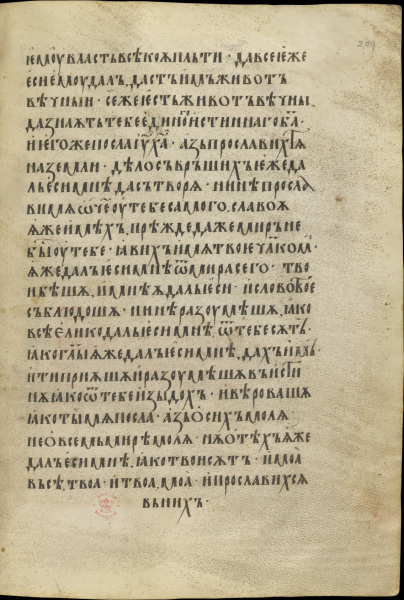 ѥмоу власть всѣкоѧ пльти · да всеѥже
ѥси ѥмоу далъ, дастъ имъ животъ
вѣчныи · се же ѥсть животъ вѣчны,
да знаѫтъ тебе единого истиннаго ба҃,
и ѥгоже посла іу҃ ха҃ · азь прославих тѧ
на земли · дѣло съвръшихъ еже да
лъ еси мнѣ да сътворѧ · и нн҃ѣ просла
ви мѧ ѿч҃е оу тебе самого, славоѫ
ѫже имѣхъ, прѣжде даже миръ не
бы оу тебе · ꙗвихъ имѧ твоѥ чл҃комъ ·
ѧже далъ еси мнѣ ѿ мира сего · тво
и бѣшѧ, и мнѣ ѧ далъ еси · и слово твоѥ
съблюдошѧ · и нн҃ѣ разоумѣшѧ, ꙗко
всѣ елико далъ еси мнѣ, ѿ тебе сѫть ·
ꙗко гл҃ы ѧже далъ еси мнѣ, дахъ имь ·
и ти приѧшѧ и разоумѣшѧ въ исти
нѫ ꙗко ѿ тебе изыдохъ · и вѣровашѧ
ꙗко ты мѧ посла · азь о сихъ молѧ
не о всемь мирѣ молѧ · нѫ о тѣхъ ѧже
далъ еси мнѣ, ꙗко твои сѫтъ · и моа
въсѣ, твоа · и твоа, моа · и прославихсѧ
вь нихъ ·